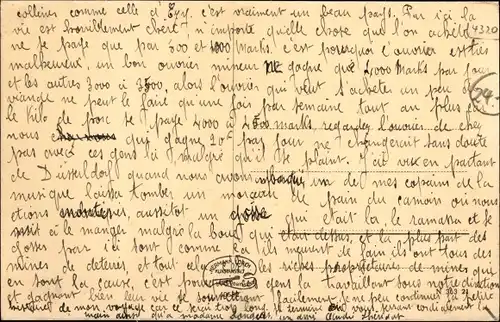 collines comme celle d'Exy, c'est vraiment un beau pays. Par ici la
vie est horriblement chère n'importe qu'elle chose que l'on achète
ne je paye que par 500 et 1000 Marks. C'est pourquoi l'ouvrier est très
4320
malheureux, un bon ouvrier mineur ne gagne que 4000 Marks par jour
et les autres 3000 à 3500, alors l'ouvrier qui veut s'acheter un peu de
54.
viande ne peut le faire qu'une fois par semaine tout au plus,
le kilo de porc se paye 4000 à 4500 marks, regardez l'ouvrier de chez
nous qui gagne 20f par jour ne changerait sans doute
pas avec ces gens là malgré qu'il se plaint. J'ai vu en partant
de Düsseldorf quand nous avons un de mes copains de la
musique laissa tomber un morceau de pain du camion où nous
étions aussitôt un gosse qui était là le ramassa et se
mit à le manger malgré la boue qui était dessus, et la plupart des
gosses par ici sont comme ça ils meurent de faim ils ont tous des
mines de déterrés, et tout cela les riches propriétaires de mines qui
en sont la cause, c'est dans la travaillant sous notre
et gagnant bien leur vie se facilement, je ne peux continuer la petite
de mon voyage car ce serait trop long, je termine en vous serrant cordialement la
main ainsi qu'à madame André